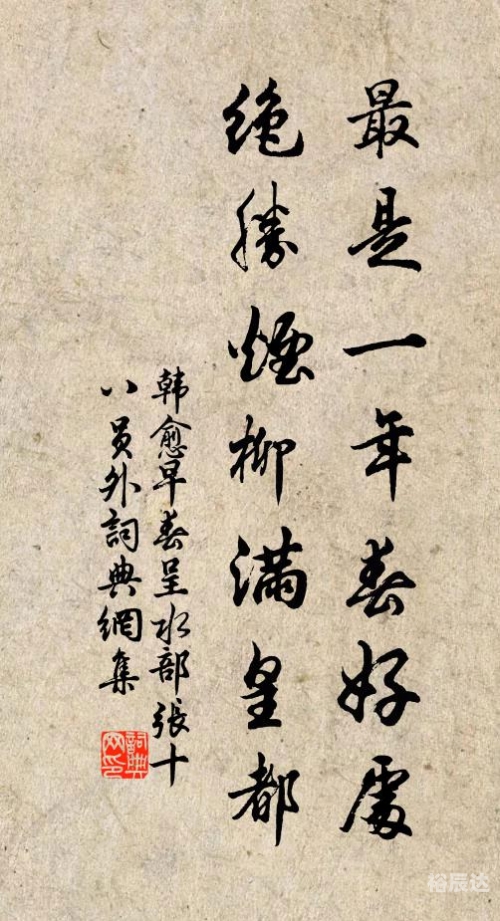 最是一年春好處
绝勝煙柳滿皇都
韩愈早春呈水部張十
八员外詞典網集
詞典
网印
裕辰达